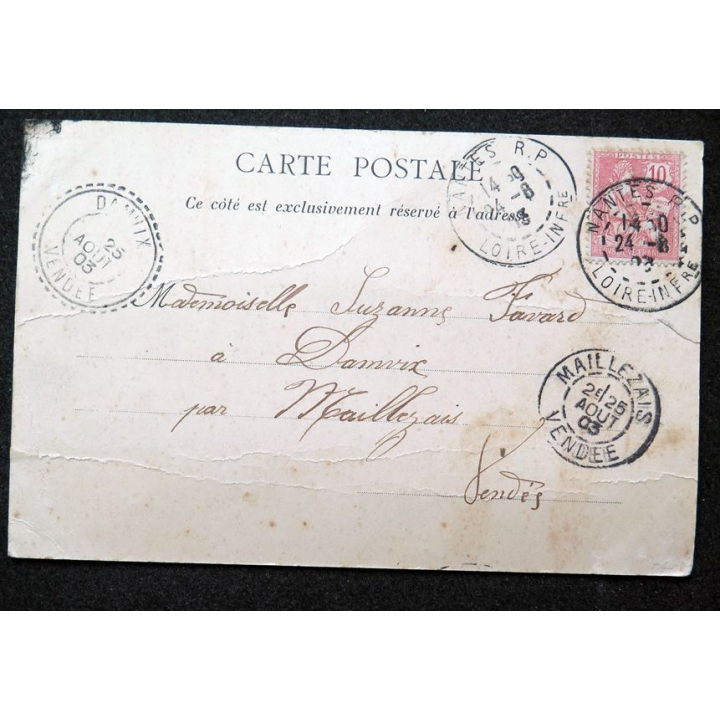 CARTE POSTALE
Ce côté est exclusivement réservé à l'adresse
NANTES R.P
14 30
24 -8
03
LOIRE-INFRE
POSTES
10
NANTES R.P
14 30
24 -8
03
LOIRE-INFRE
DAMVIX
25
AOUT
03
VENDÉE
Mademoiselle Suzanne Favard
à Damvix
par Maillezais
Vendée
MAILLEZAIS
2E 25
AOUT
03
VENDEE